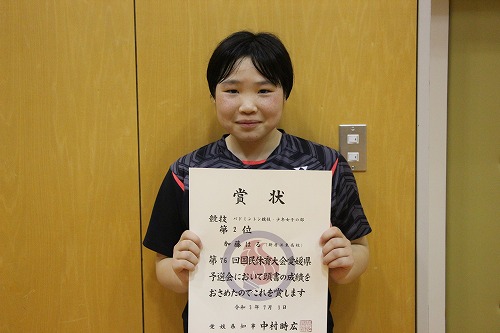 賞状
競技 バドミントン競技・少年女子の部
第2位
加藤はる
第76回国民体育大会愛媛県
予選会において頭書の成績を
おさめたのでこれを賞します
令和3年7月
愛媛県知事 中村時広